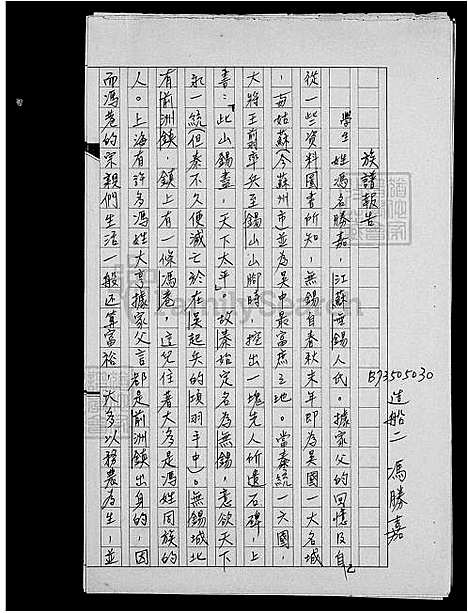 族譜報告
B73505030 造船二 馮勝嘉
學生姓馮名勝嘉，江蘇無錫人氏。據家父的回憶及自己
從一些資料圖書所知，無錫自春秋末年即為吳國一大名城
，與姑蘇（今蘇州市）並為吳中最富庶之地。當秦統一六國，
大將王翦率兵至錫山山腳時，挖出一塊先人所遺石碑，上
書：此山錫盡，天下太平，故秦始定名為無錫，意欲天下
永一統（但秦不久便滅亡於在吳起兵的項羽手中）。無錫城北
有前洲鎮，鎮上有一條馮巷，這兒住著大多是馮姓同族的
人。上海有許多馮姓大亨據家父言都是前洲鎮出身的，因
而馮巷的宗親們生活一般还算富裕，大多以務農為生，並
FamilySearch